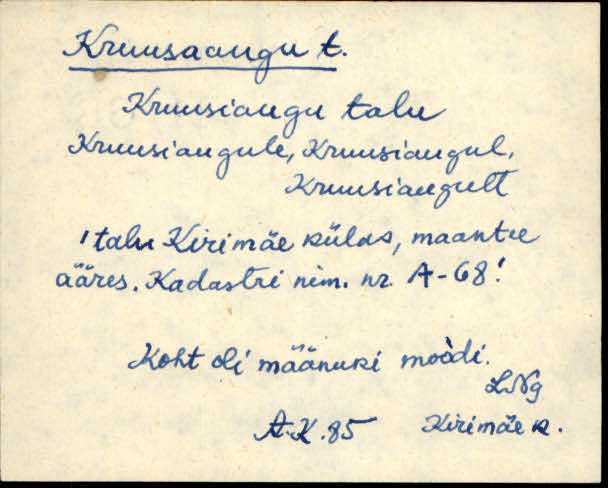 Kruusaaugu t.
Kruusiaugu talu
Kruusiaugule, Kruusiaugul,
Kruusiaugult
1 talu Kirimäe külas, maantee
ääres. Kadastri nim. nr. A-68!
Koht oli määnuki moòdi.
LNg
A.K.85 Kirimäe k.